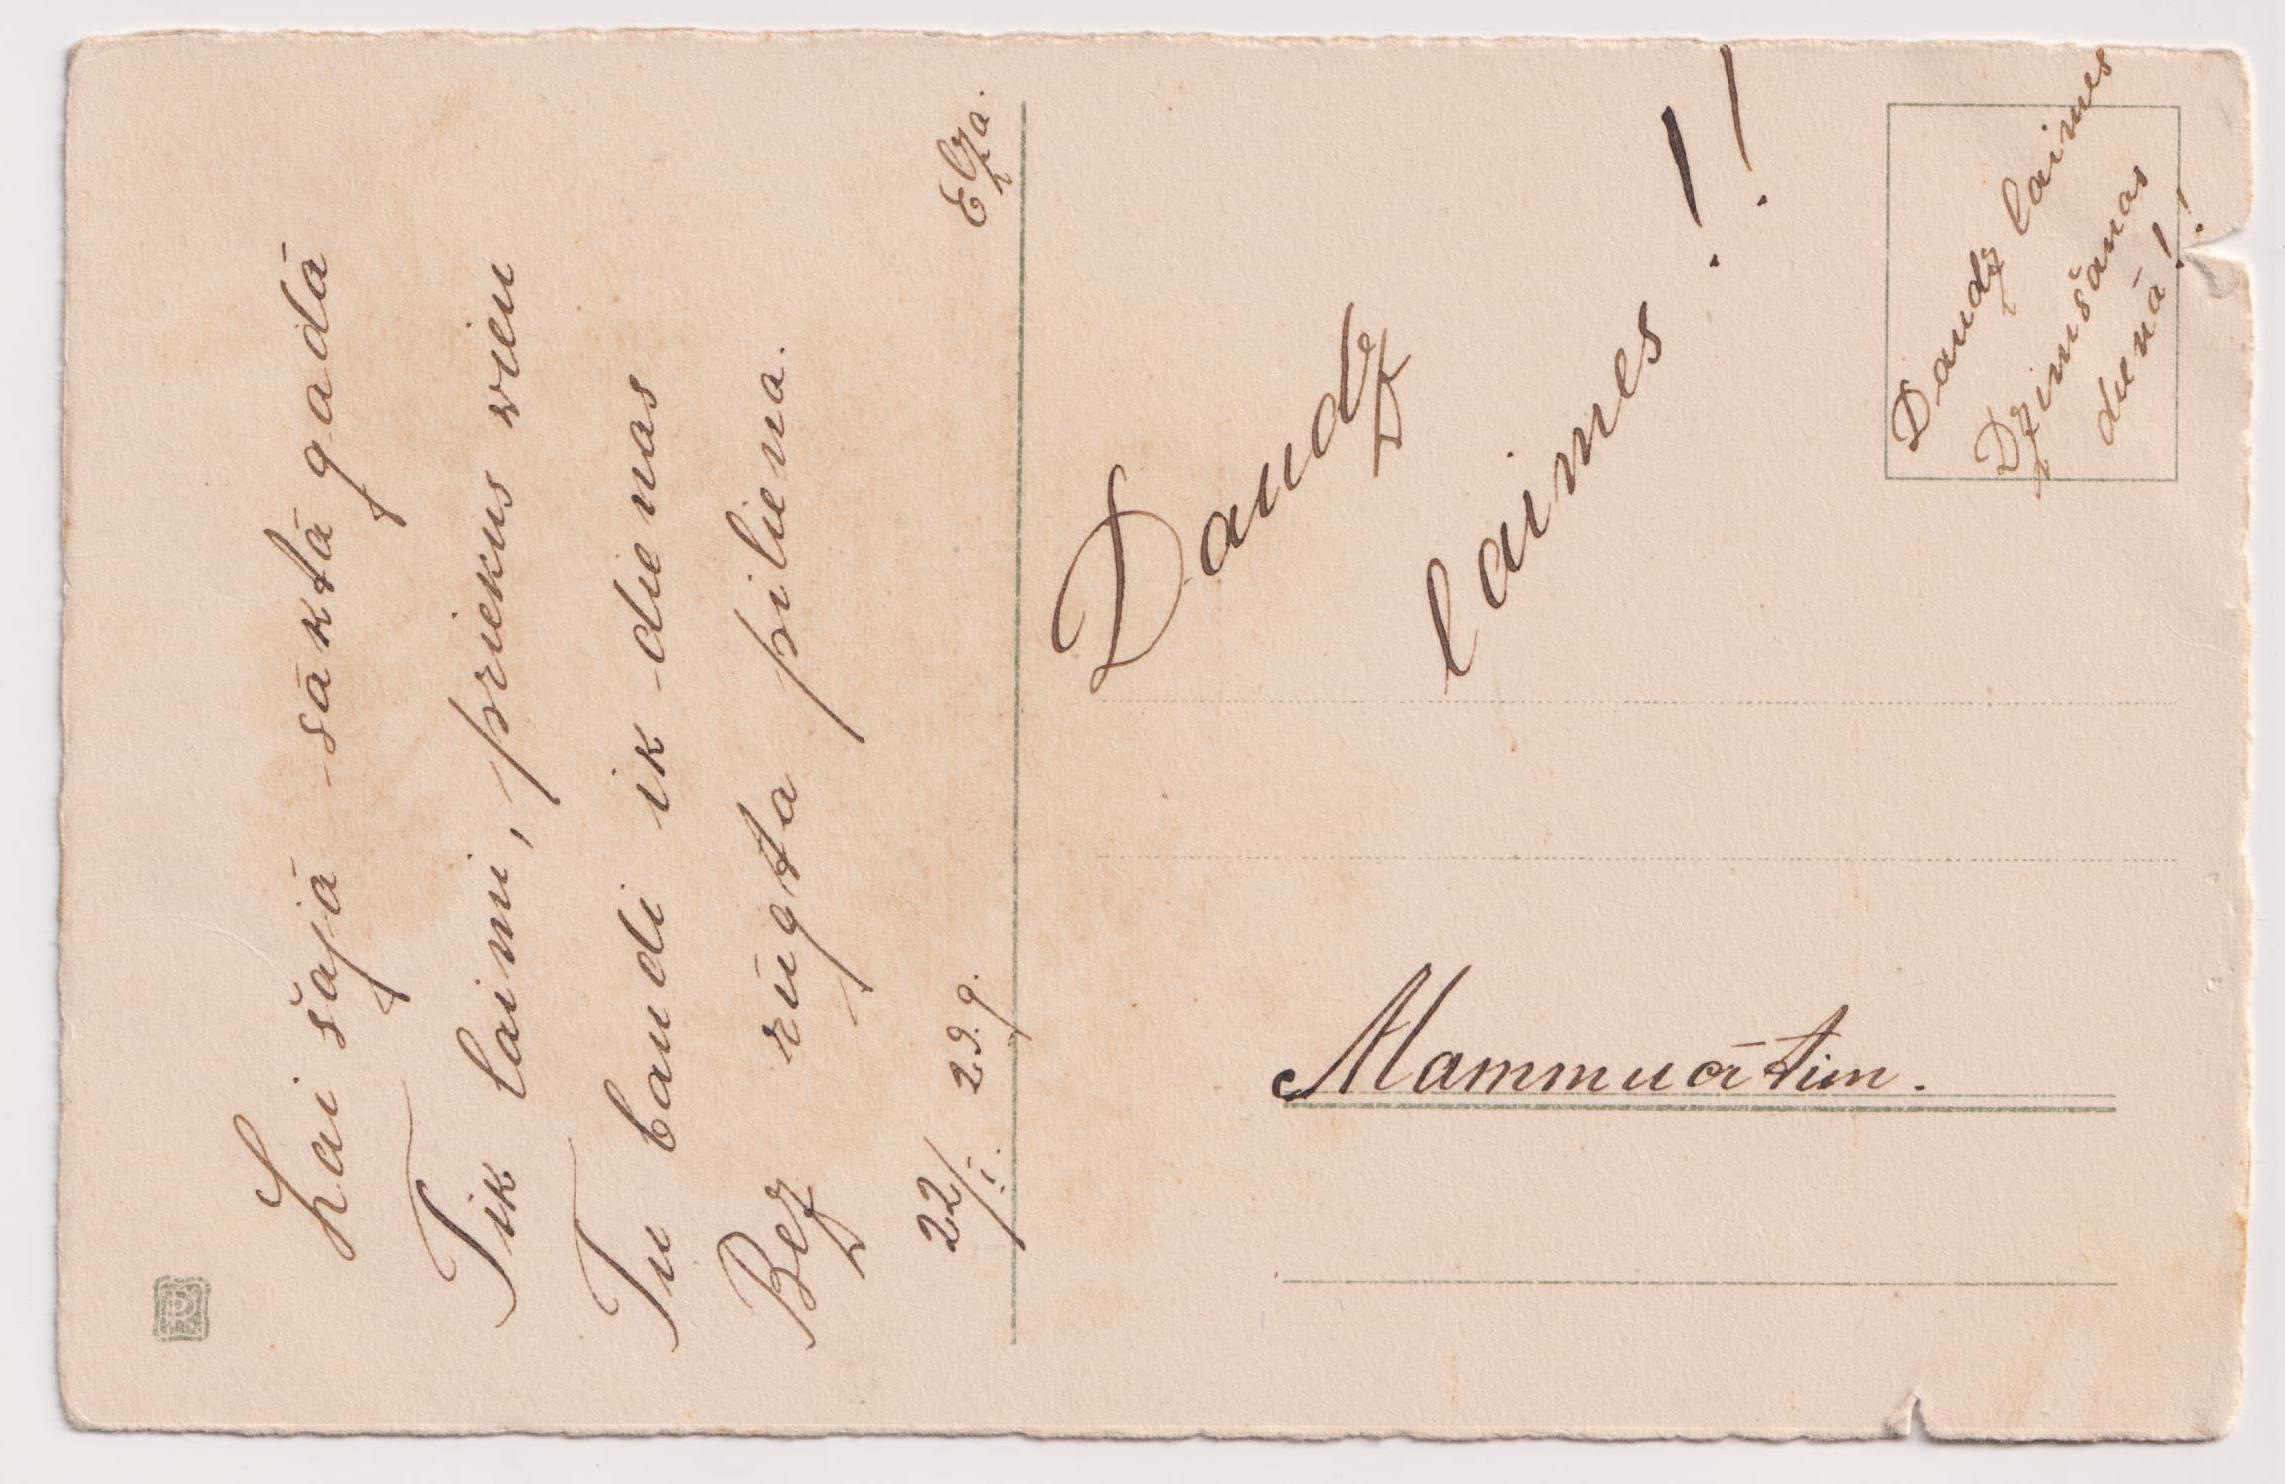 Lai šajā sāktā gadā
Tik laimi, priekus vien
Tu baudi ik dienas
Bez rūgta piliena.
22/I. 29.g.
Elza.
Daudz
laimes!!
Daudz laimes
Dzimšanas
dienā!!
Mammuātim.